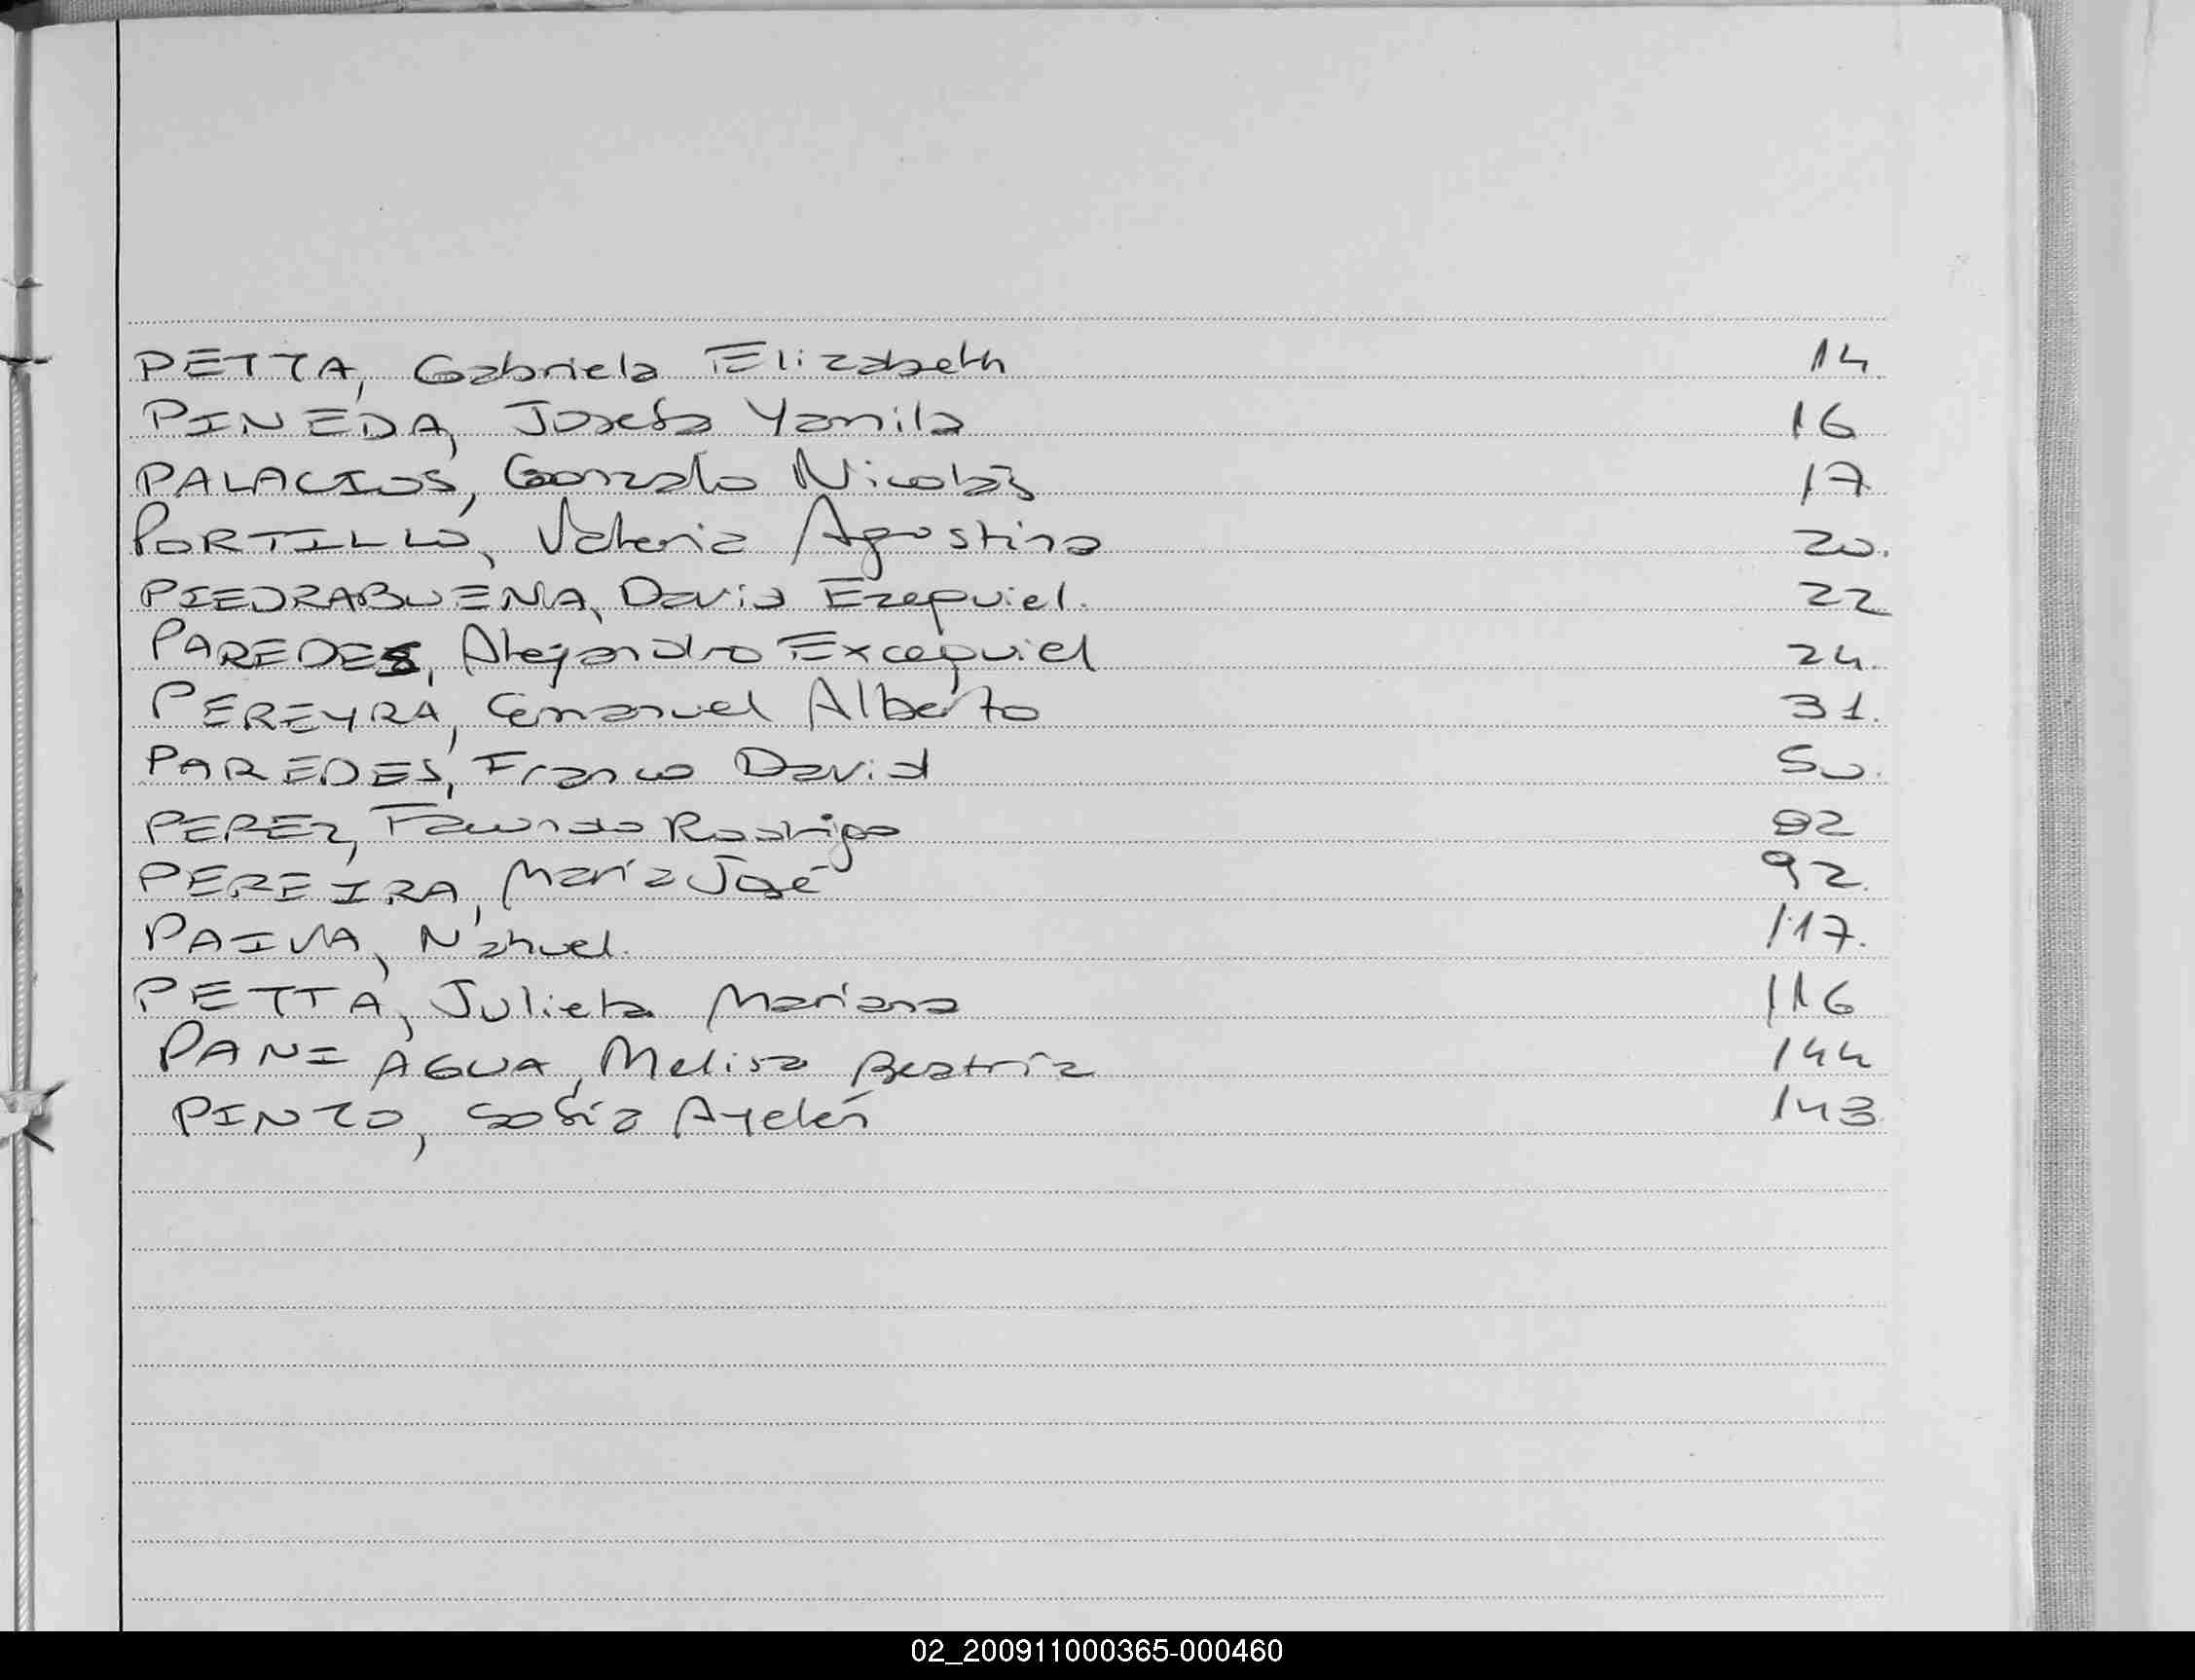 PETTA, Gabriela Elizabeth 14
PINEDA, Josefa Yamila 16
PALACIOS, Gonzalo Nicolás 17
PORTILLO, Valeria Agostina 20.
PIEDRABUENA, David Ezequiel. 22
PAREDES, Alejandro Excequiel 24.
PEREYRA, Emanuel Alberto 31.
PAREDES, Franco David 50.
PEREZ, Facundo Rodrigo 82
PEREIRA, María José 92.
PAIVA, Nahuel. 117.
PETTA, Julieta Mariana 116
PANI AGUA, Melisa Beatríz 144
PINTO, Sofía Ayelén 143
02_200911000365-000460